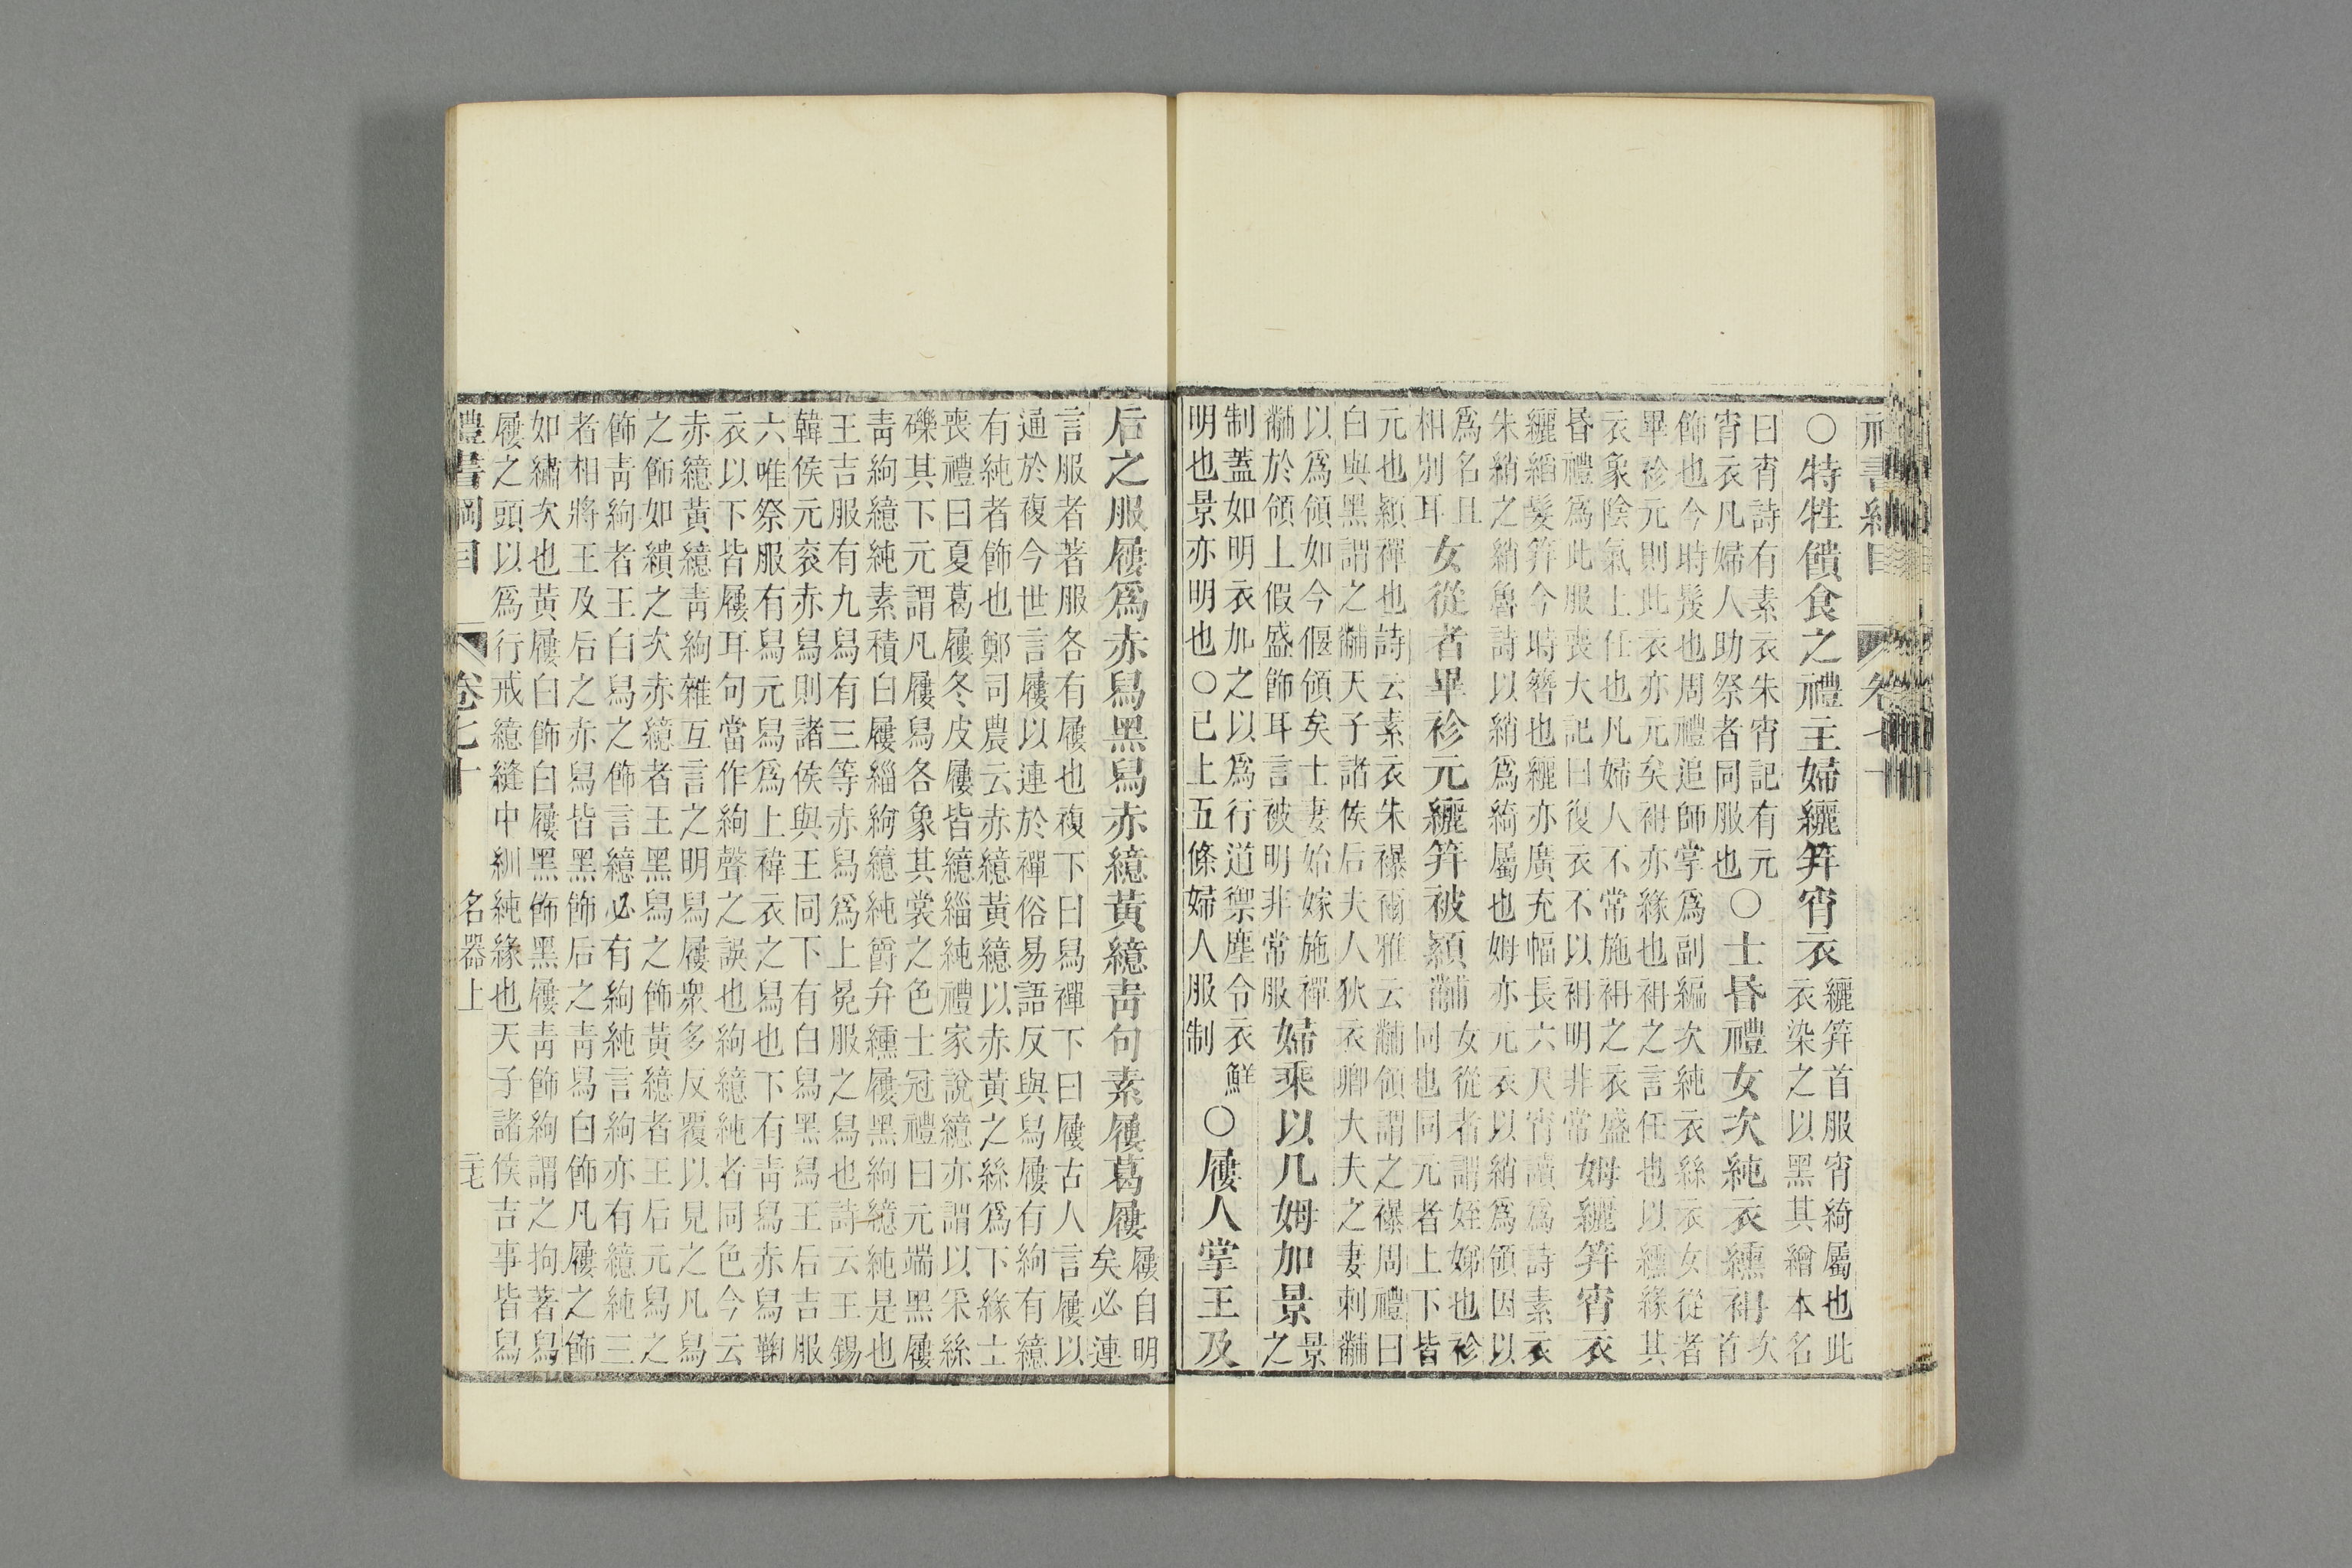 ○特牲饋食之禮主婦纚笄宵衣
纚笄首服宵綺屬也此
衣染之以黑其繒本名
曰宵詩有素衣朱宵記有元
宵衣凡婦人助祭者同服也
○士昏禮女次純衣纁袡
次
首
飾也今時髲也周禮追師掌爲副編次純衣絲衣女從者
畢袗元則此衣亦元矣袡亦緣也袡之言任也以纁緣其
衣象陰氣上任也凡婦人不常施袡之衣盛
昏禮爲此服喪大記曰復衣不以袡明非常
姆纚笄宵衣
纚縚髮笄今時簪也纚亦廣充幅長六尺宵讀爲詩素衣
朱綃之綃魯詩以綃爲綺屬也姆亦元衣以綃爲領因以
爲名且
相別耳
女從者畢袗元纚笄被穎黼
女從者謂姪娣也袗
同也同元者上下皆
元也穎襌也詩云素衣朱襮爾雅云黼領謂之襮周禮曰
白與黑謂之黼天子諸侯后夫人狄衣卿大夫之妻刺黼
以爲領如今偃領矣士妻始嫁施襌
黼於領上假盛飾耳言被明非常服
婦乘以几姆加景
景
之
制蓋如明衣加之以爲行道禦塵令衣鮮
明也景亦明也○已上五條婦人服制
○屨人掌王及
后之服屨爲赤舄黑舄赤繶黃繶青句素屨葛屨
屨自明
矣必連
言服者著服各有屨也複下曰舄襌下曰屨古人言屨以
通於複今世言屨以連於襌俗易語反與舄屨有絇有繶
有純者飾也鄭司農云赤繶黃繶以赤黃之絲爲下緣士
喪禮曰夏葛屨冬皮屨皆繶緇純禮家說繶亦謂以采絲
礫其下元謂凡屨舄各象其裳之色士冠禮曰元端黑屨
青絇繶純素積白屨緇絇繶純爵弁纁屨黑絇繶純是也
王吉服有九舄有三等赤舄爲上冕服之舄也詩云王錫
韓侯元袞赤舄則諸侯與王同下有白舄黑舄王后吉服
六唯祭服有舄元舄爲上褘衣之舄也下有青舄赤舄鞠
衣以下皆屨耳句當作絇聲之誤也絇繶純者同色今云
赤繶黃繶青絇雜互言之明舄屨衆多反覆以見之凡舄
之飾如繢之次赤繶者王黑舄之飾黃繶者王后元舄之
飾青絇者王白舄之飾言繶必有絇純言絇亦有繶純三
者相將王及后之赤舄皆黑飾后之青舄白飾凡屨之飾
如繡次也黃屨白飾白屨黑飾黑屨青飾絇謂之拘著舄
屨之頭以爲行戒繶縫中紃純緣也天子諸侯吉事皆舄
禮書綱目
卷七十
名器上